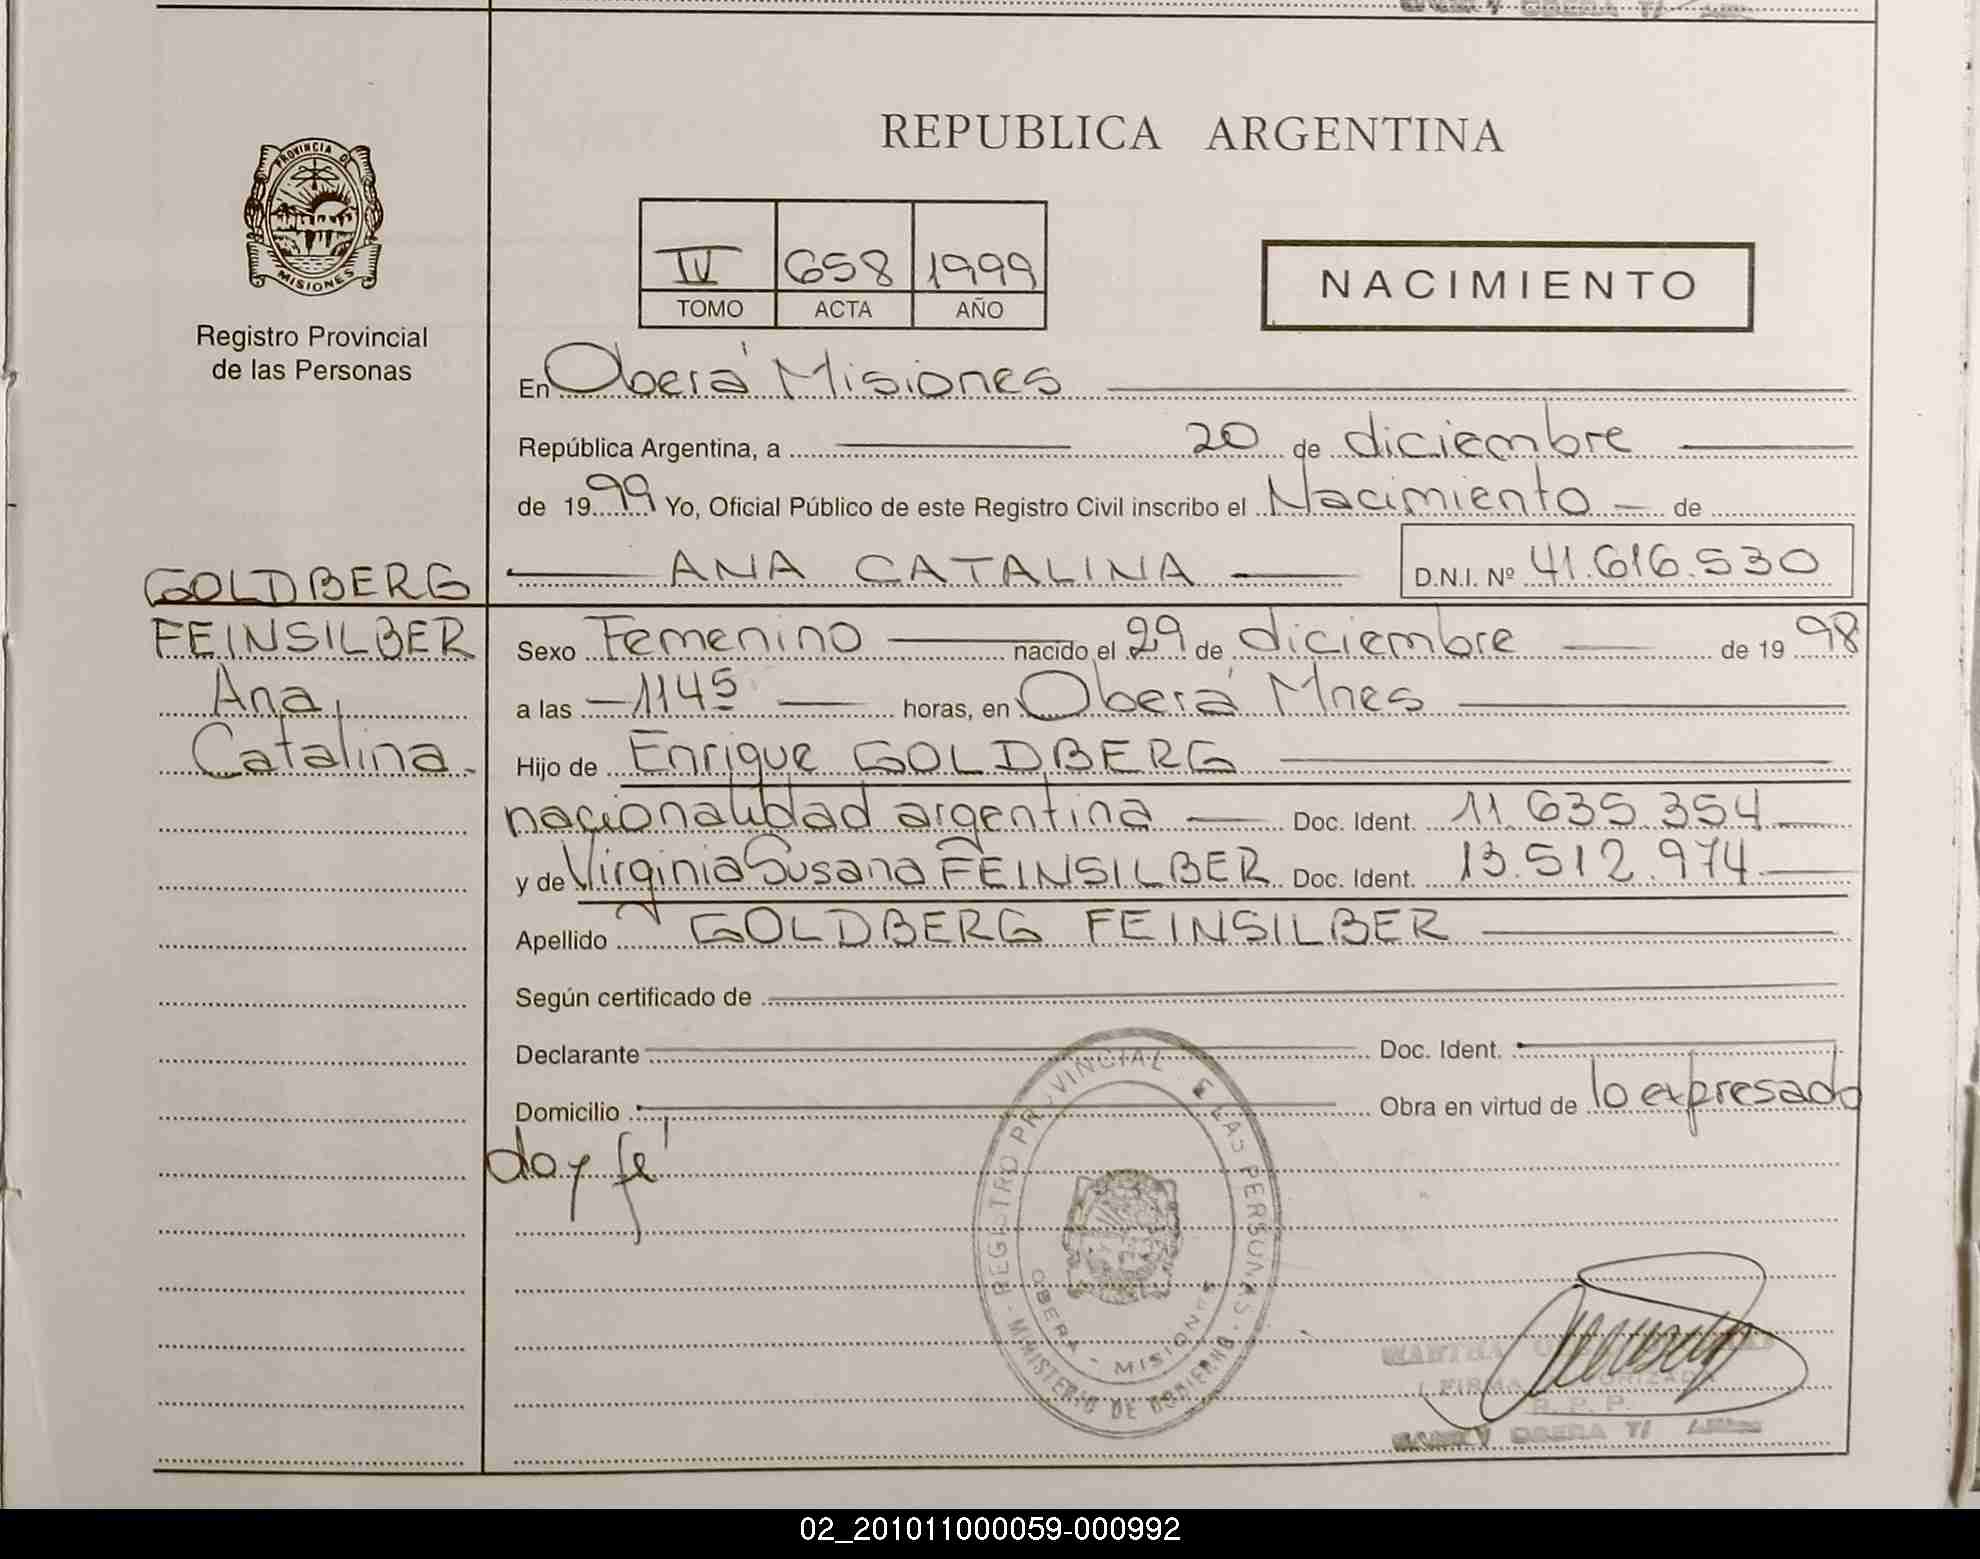 REPUBLICA ARGENTINA
PROVINCIA D
MISIONES
Registro Provincial
de las Personas
IV 658 1999
TOMO ACTA AÑO
NACIMIENTO
En Oberá Misiones
República Argentina, a 20 de diciembre
de 1999 Yo, Oficial Público de este Registro Civil inscribo el Nacimiento de
ANA CATALINA D.N.I. Nº 41.616.530
GOLDBERG
FEINSILBER
Ana
Catalina
Sexo Femenino nacido el 29 de diciembre de 1998
a las 1145 horas, en Oberá Mnes
Hijo de Enrique GOLDBERG
nacionalidad argentina Doc. Ident. 11.635.354
y de Virginia Susana FEINSILBER Doc. Ident. 13.512.974
Apellido GOLDBERG FEINSILBER
Según certificado de
Declarante Doc. Ident.
Domicilio Obra en virtud de lo expresado
doy fé
REGISTRO PROVINCIAL E LAS PERSONAS
OBERA - MISIONES
MINISTERIO DE GOBIERNO
MARTHA
FIRMA AUTORIZADA
R. P. P.
OBERA
02_201011000059-000992